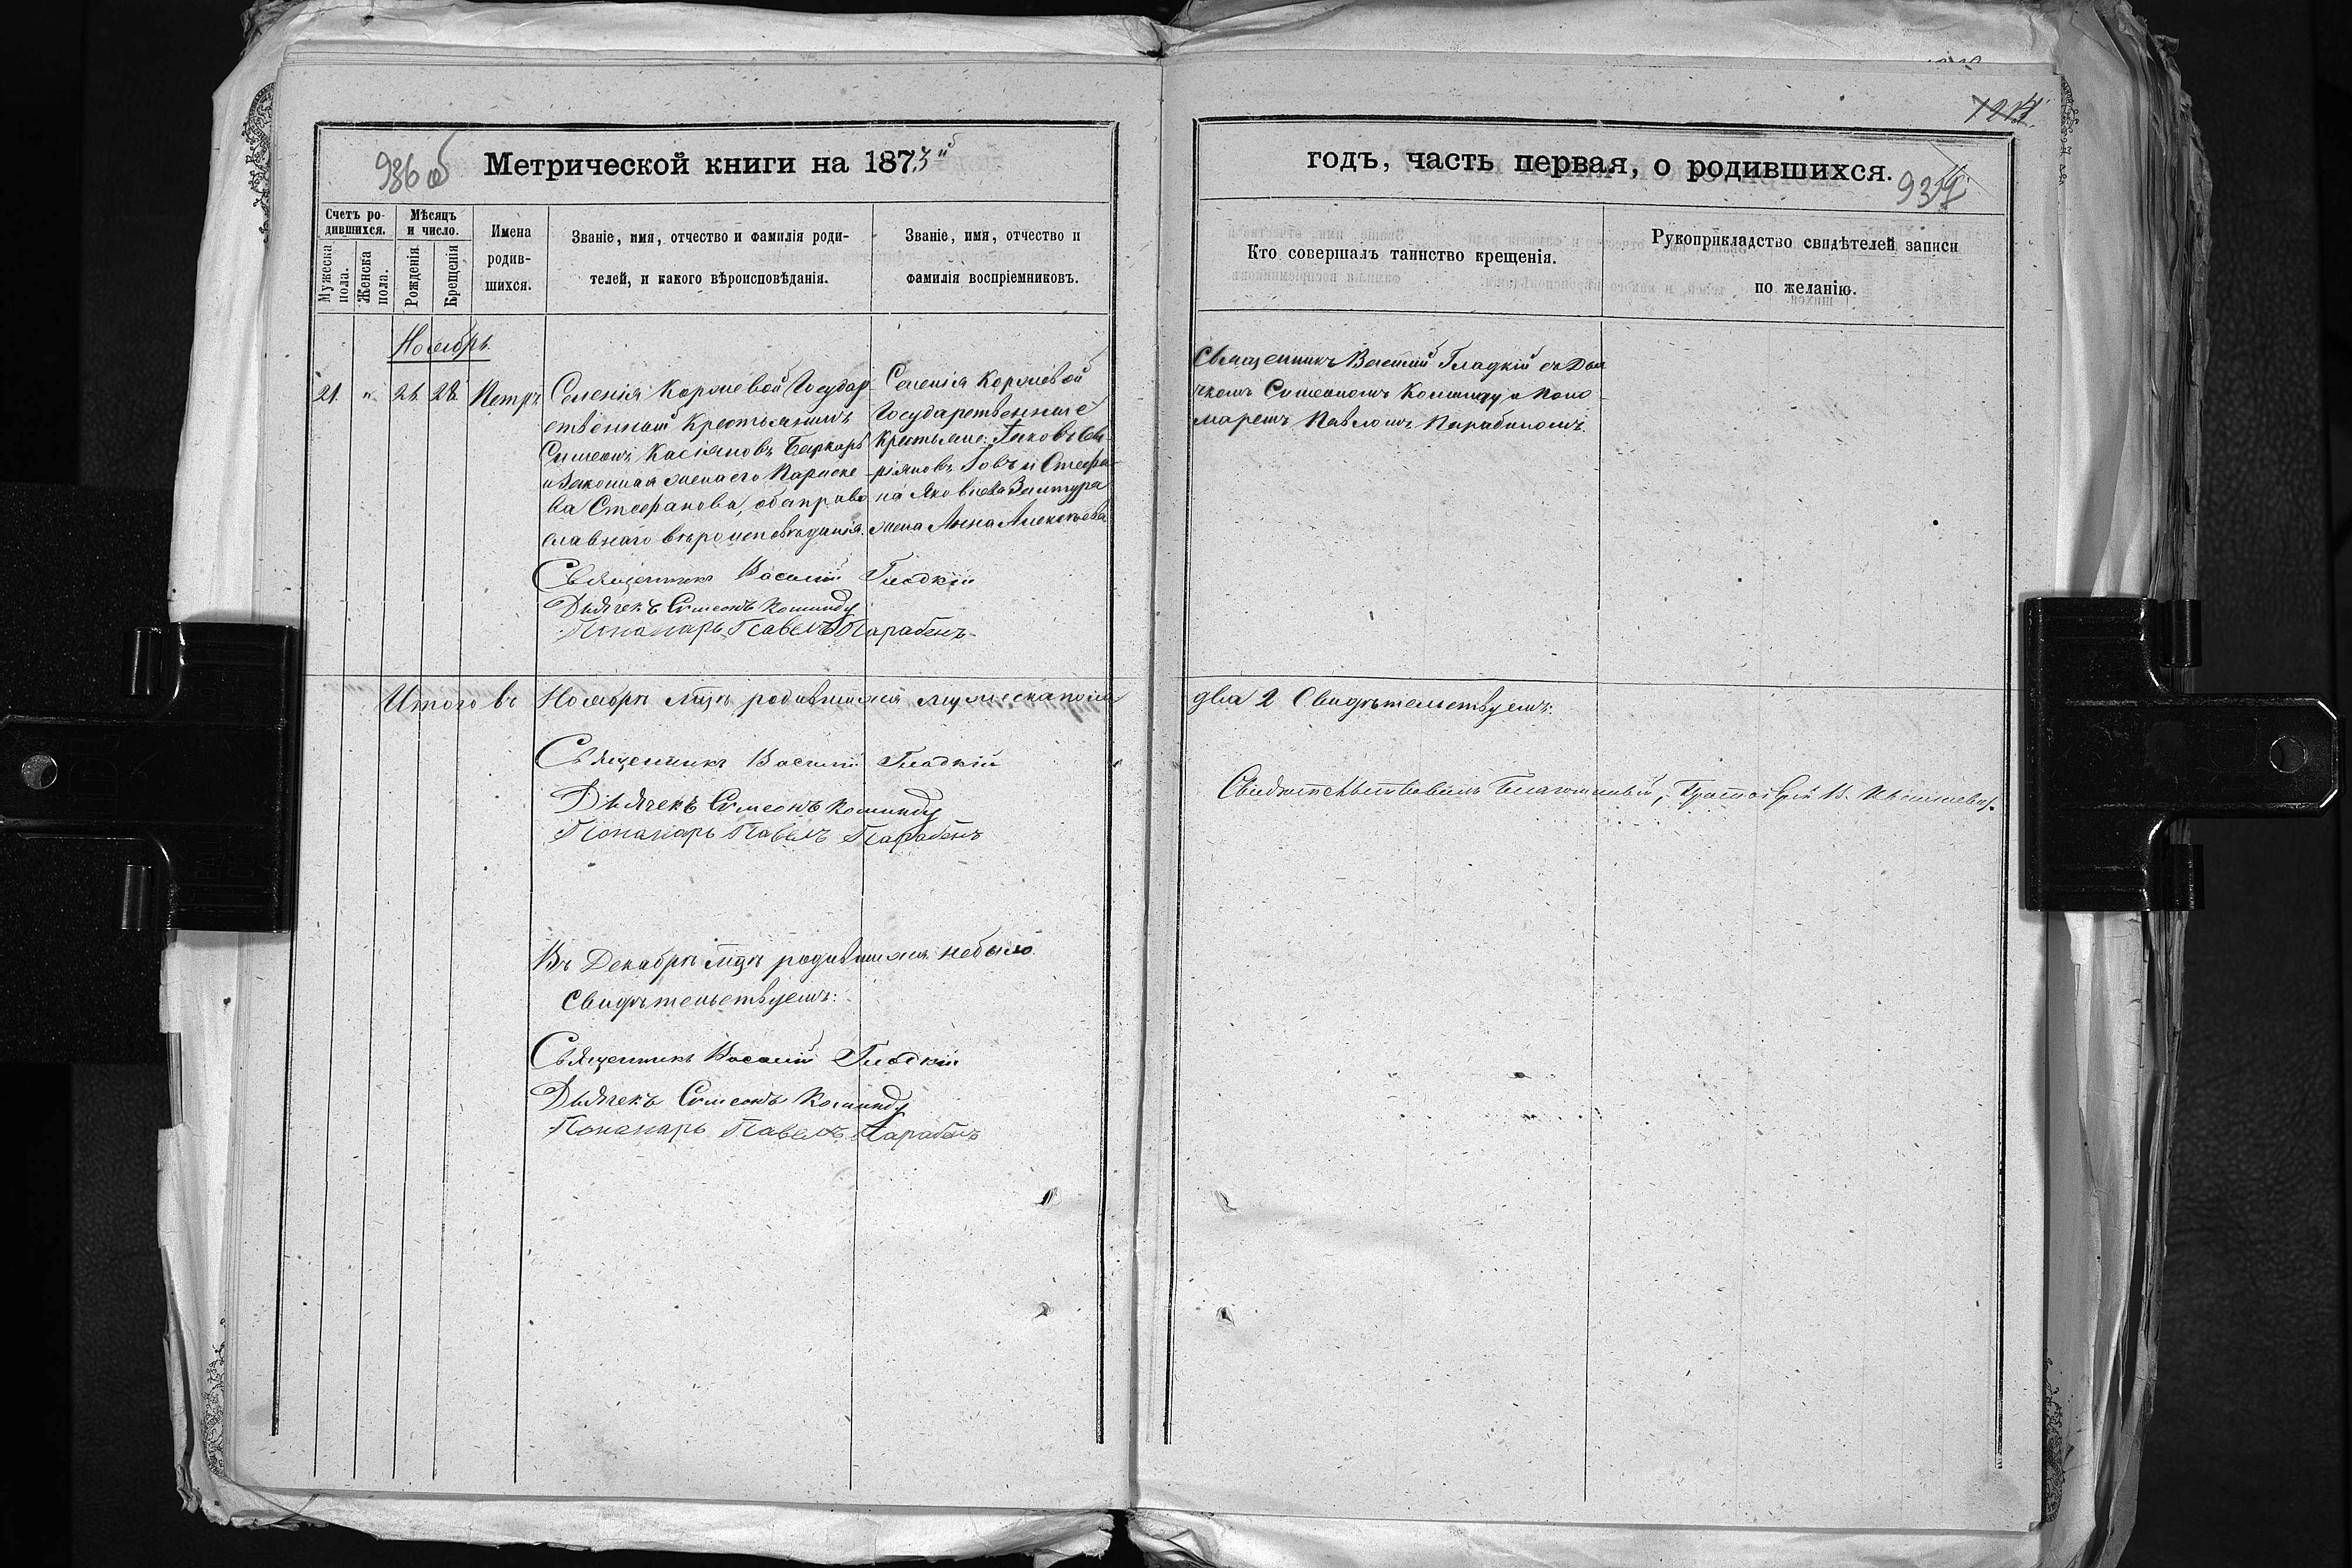 936 об
Метрической книги на 1873й
годъ, часть первая, о родившихся.
937
Счетъ ро-
дившихся.
Мѣсяцъ
и число.
Мужеска
пола.
Женска
пола.
Рожденія
Крещенія
Имена
родив-
шихся.
Званіе, имя, отчество и фамилія роди-
телей, и какого вѣроисповѣданія.
Званіе, имя, отчество и
фамилія воспріемниковъ.
Кто совершалъ таинство крещенія.
Рукоприкладство свидѣтелей записи
по желанію.
Ноябрь.
21. " 26. 28. Петръ
Селенія Коржевой Государ
ственный Крестьянинъ
Симеонъ Касіяновъ Баркарь
и законная жена его Параске
ва Стефанова, оба право
славнаго вѣроисповѣданія.
Селенія Коржевой
Государственные
Крестьяне: Іаковъ
ріяновъ Говъ и Стефа
на Яковлева
жена Анна Алексѣева
Священникъ Василій Гладкій съ Дья
чкомъ Симеономъ Коминду и поно-
маремъ Павломъ Парабиномъ.
Священникъ Василій Гладкій
Дьячекъ Симеонъ Коминду
Понамарь Павелъ Парабенъ
Итого въ Ноябрѣ мцѣ родившихся мужеска пола
два 2 Свидѣтельствуемъ:
Священникъ Василій Гладкій
Дьячекъ Симеонъ Коминду
Понамарь Павелъ Парабенъ
Свидетельствовалъ Благочинный, Протоіерей В.
Въ Декабрѣ мцѣ родившихся небыло
Свидѣтельствуемъ:
Священникъ Василій Гладкій
Дьячекъ Симеонъ Коминду
Понамарь Павелъ Парабенъ